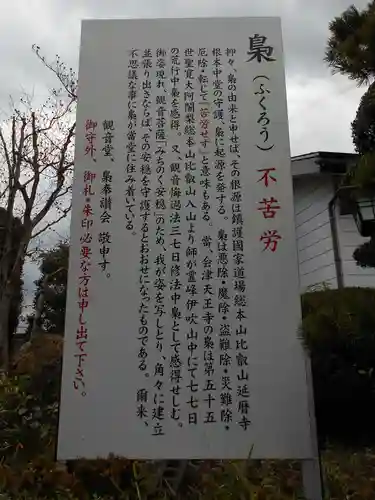 梟(ふくろう)不苦労
抑々、梟の由来と申せば、その根源は鎮護國家道場総本山比叡山延暦寺
根本中堂の守護、梟に起源を発する。梟は悪除・魔除・盗難除・災難除・
厄除・転じて『苦労せず』と意味もある。當、会津天王寺の梟は第五十五
世聖寛大阿闍梨総本山比叡山入山より師が霊峰伊吹山中にて七七日
の荒行中梟を感得。又、観音悔過法三七日修法中梟として感得せしむ。
御姿現れ、観音菩薩「みちのく安穏」のため、我が姿を写しとり、角々に建立
並張り出さならば、その安穏を守護するとおおせになったものである。爾来、
不思議な事に梟が當堂に住み着いている。
観音堂、梟奉讃会 敬申す。
御守外、御札・朱印必要な方は申し出て下さい。